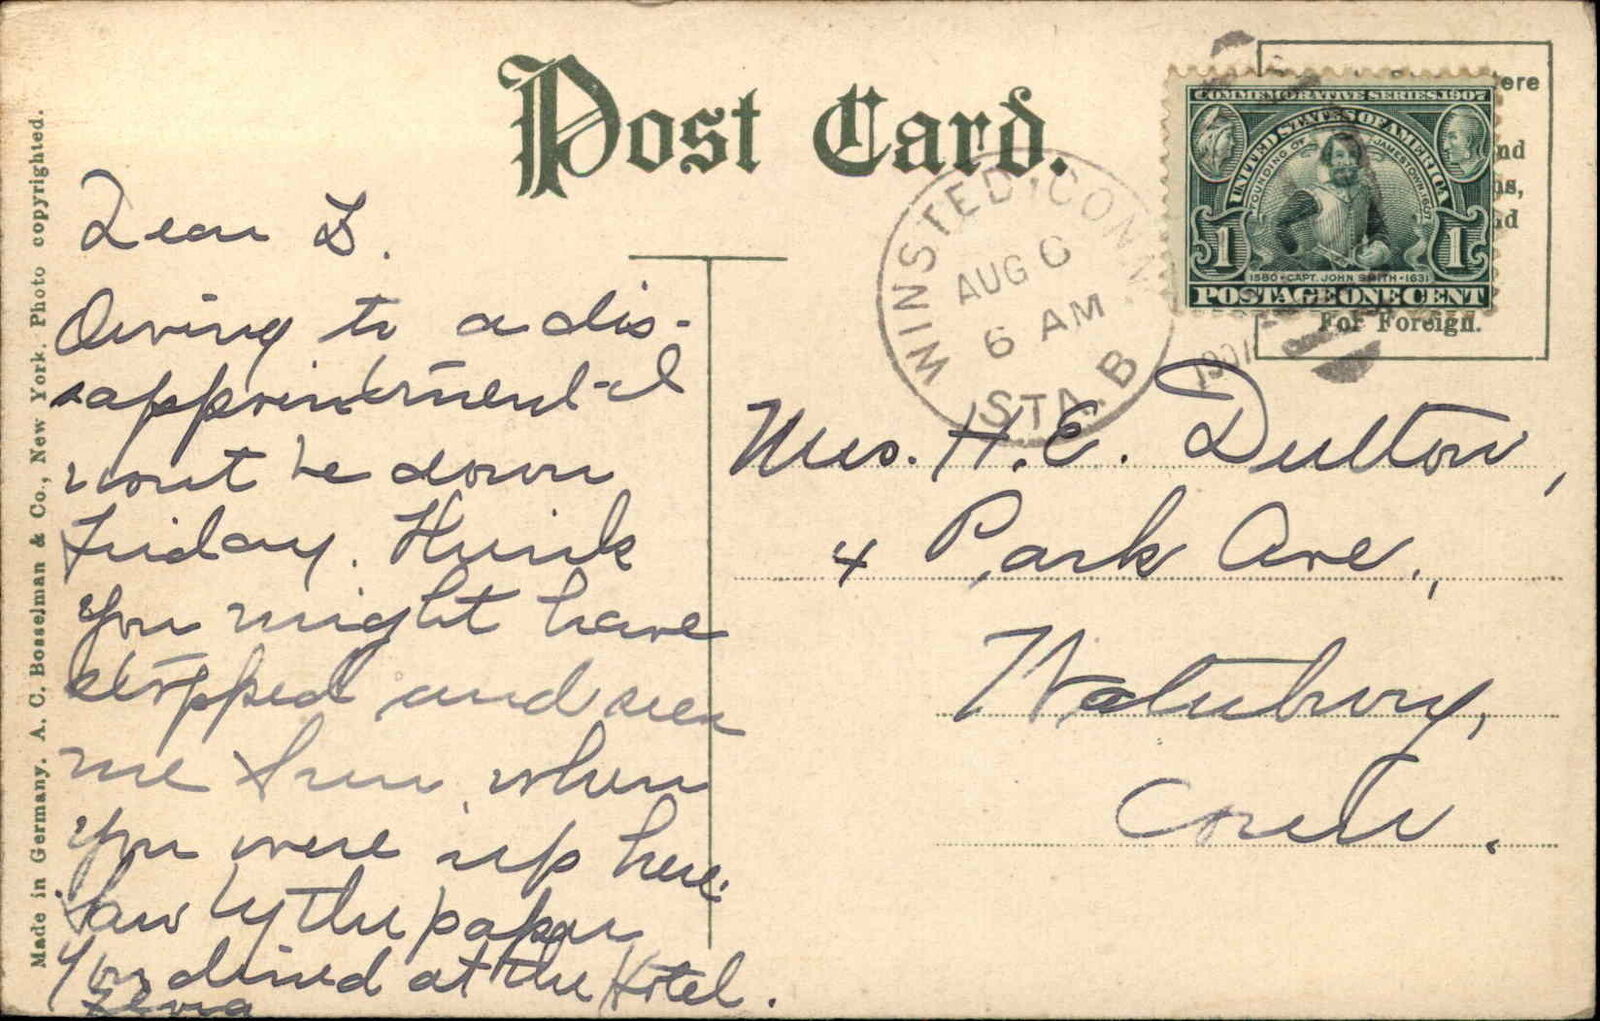 Post Card.
Made in Germany. A. C. Bosselman & Co., New York. Photo copyrighted.
Dear D.
Owing to a dis-
sappointment I
wont be down
Friday. Think
you might have
stopped and seen
me when
you were up here.
Saw by the paper
You dined at the Hotel.
WINSTED, CONN.
AUG 6
6 AM
STA. B
1907
COMMEMORATIVE SERIES 1907
UNITED STATES OF AMERICA
FOUNDING OF JAMESTOWN 1607
1 1
1580 • CAPT. JOHN SMITH • 1631
POSTAGE ONE CENT
ere
nd
ns,
nd
For Foreign.
Mrs. H. E. Dutton,
4 Park Ave.,
Waterbury,
Conn.